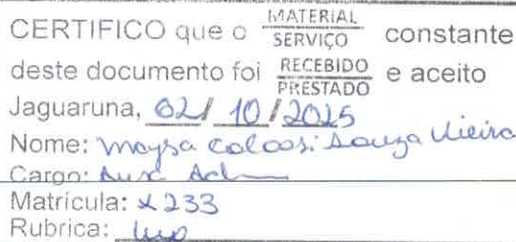 CERTIFICO que o MATERIAL/SERVIÇO constante
deste documento foi RECEBIDO/PRESTADO e aceito
Jaguaruna, 02/10/2025
Nome: Maysa Souza Vieira
Cargo: Aux. Adm
Matrícula: 233
Rubrica: